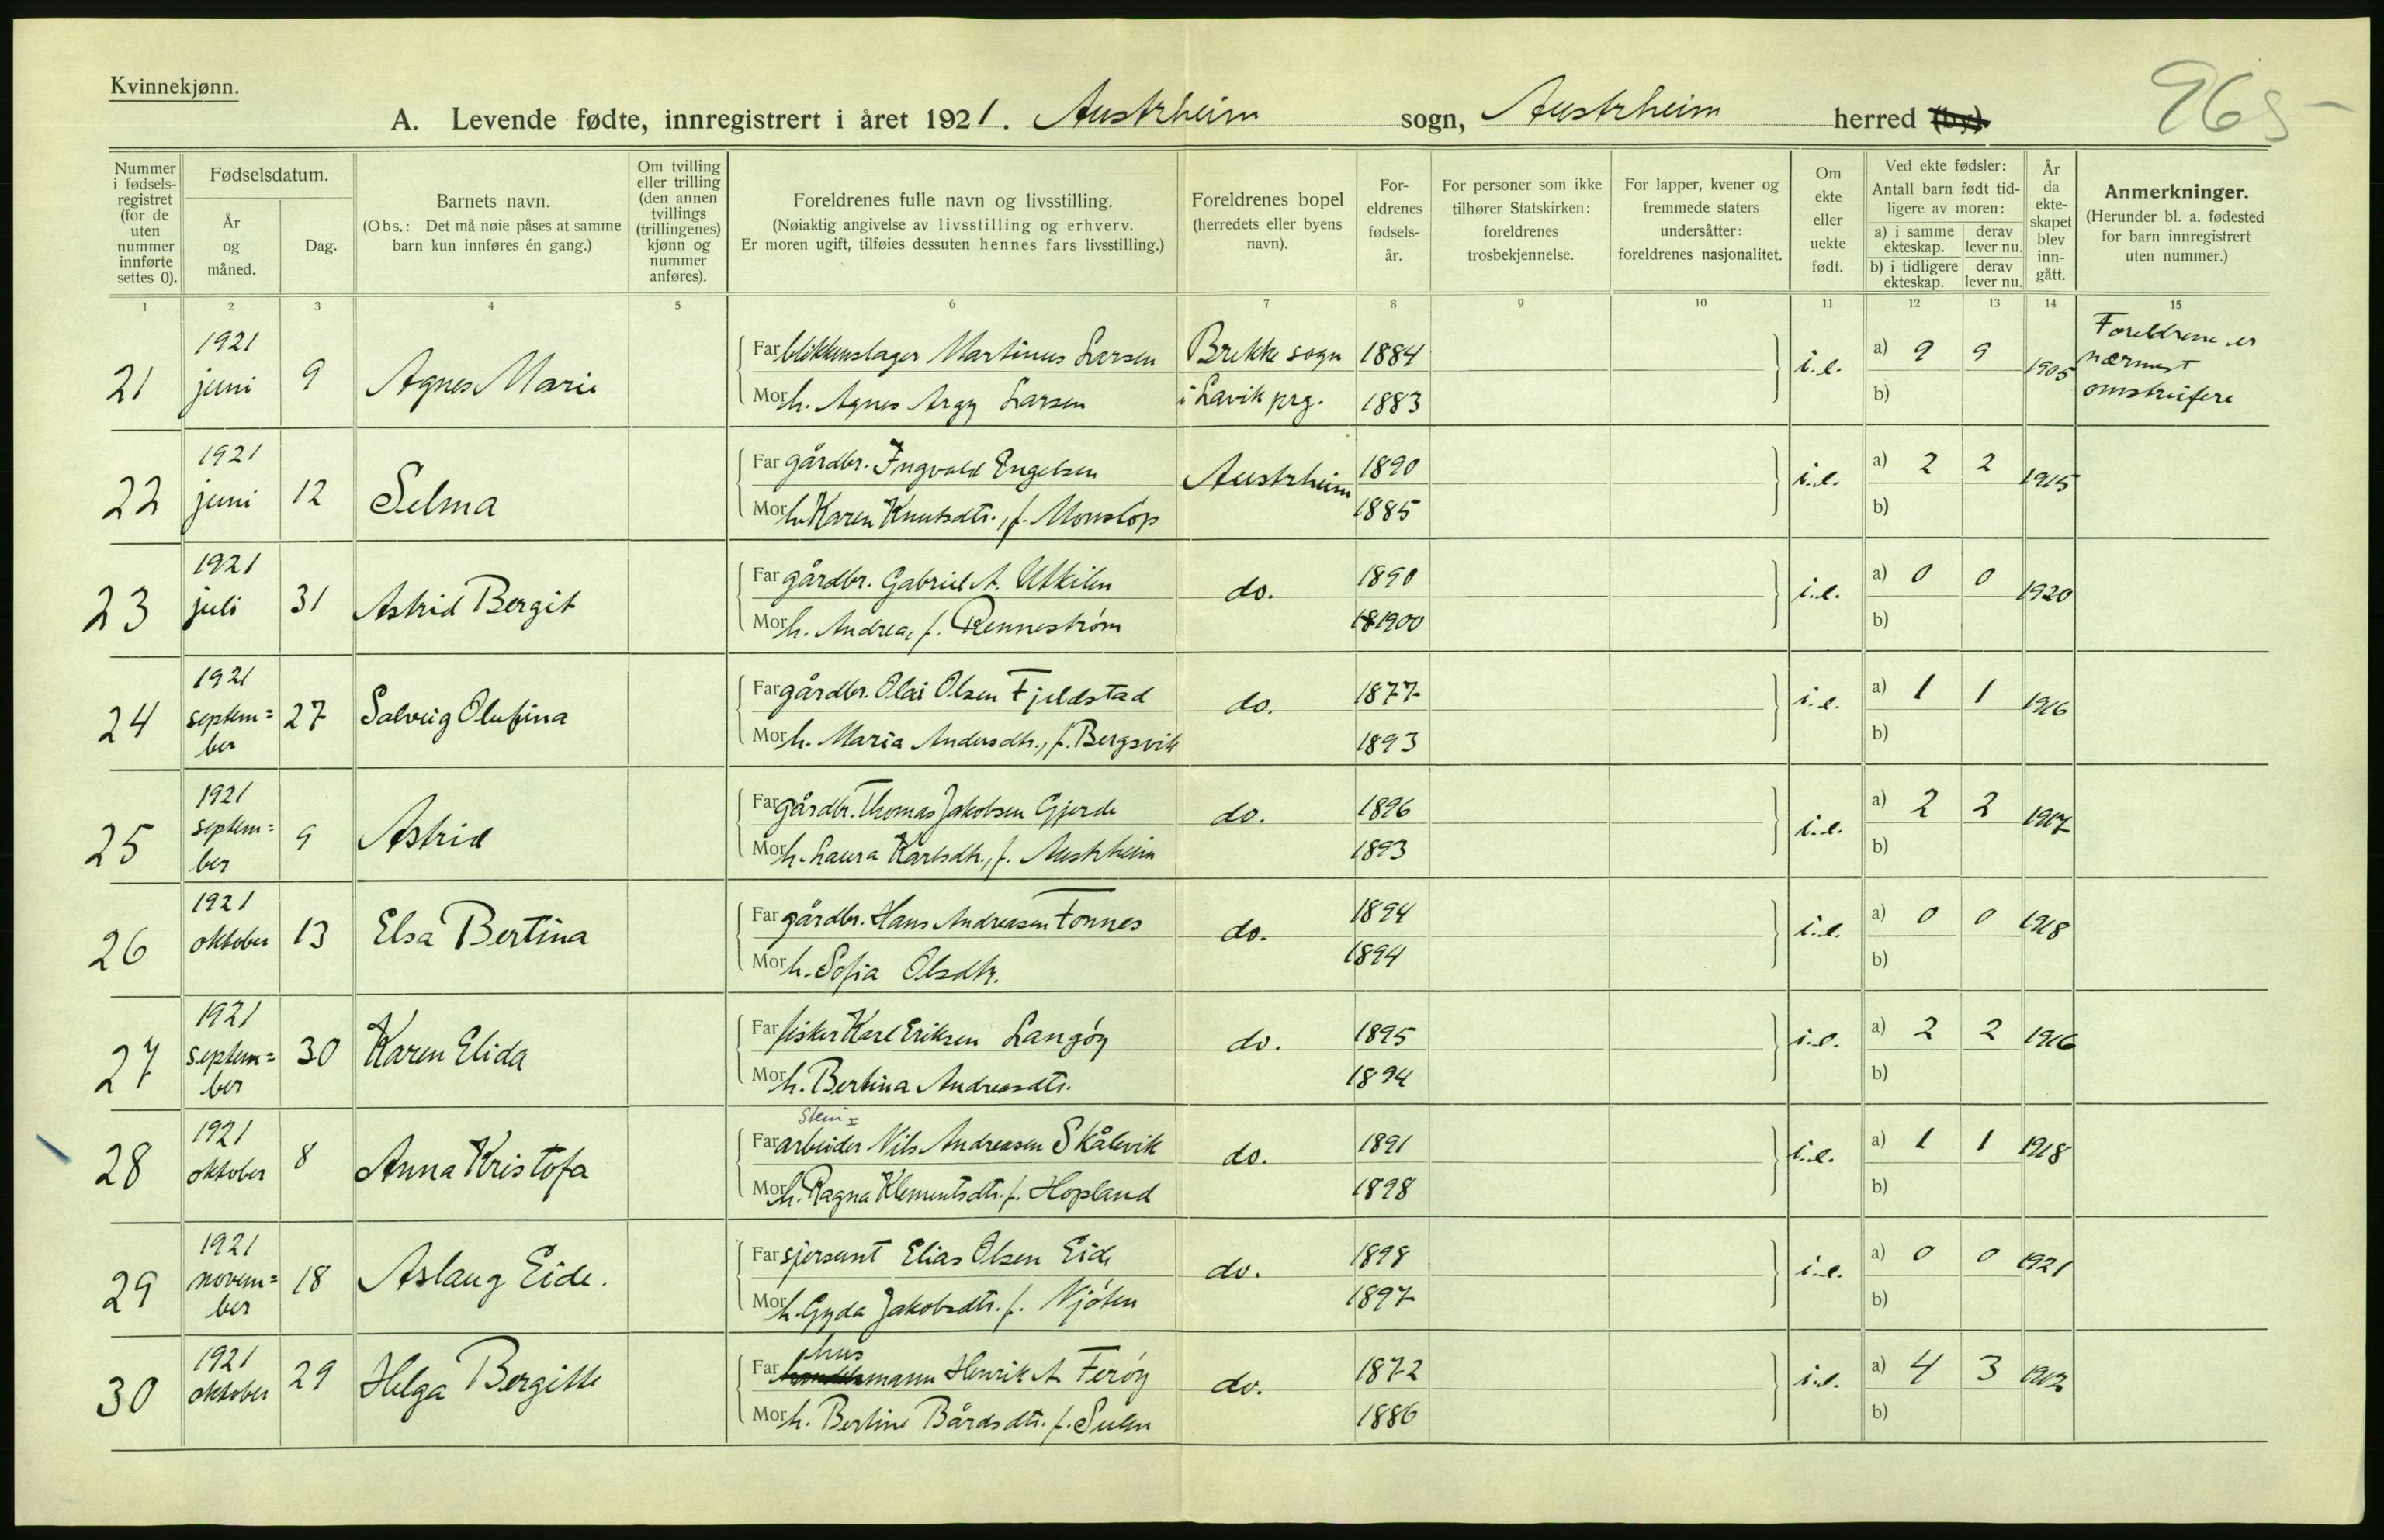 Kvinnekjønn.
A. Levende fødte, innregistrert i året 1921. Austrheim sogn, Austrheim herred (by).
965
Nummer i fødsels-registret (for de uten nummer innførte settes 0).
Fødselsdatum.
År og måned.
Dag.
Barnets navn.
(Obs.: Det må nøie påses at samme barn kun innføres én gang.)
Om tvilling eller trilling (den annen tvillings (trillingenes) kjønn og nummer anføres).
Foreldrenes fulle navn og livsstilling.
(Nøiaktig angivelse av livsstilling og erhverv.
Er moren ugift, tilføies dessuten hennes fars livsstilling.)
Foreldrenes bopel (herredets eller byens navn).
For-eldrenes fødsels-år.
For personer som ikke tilhører Statskirken: foreldrenes trosbekjennelse.
For lapper, kvener og fremmede staters undersåtter: foreldrenes nasjonalitet.
Om ekte eller uekte født.
Ved ekte fødsler:
Antall barn født tid-ligere av moren:
a) i samme ekteskap. derav lever nu.
b) i tidligere ekteskap. derav lever nu.
År da ekte-skapet blev inn-gått.
Anmerkninger.
(Herunder bl. a. fødested for barn innregistrert uten nummer.)
1 2 3 4 5 6 7 8 9 10 11 12 13 14 15
21 1921 juni 9 Agnes Marie
Far blikkenslager Martinus Larsen Brekke sogn 1884 i.e. a) 9 9 1905 Foreldrene er nærmest omstreifere
Mor h. Agnes Larsen i Lavik prg. 1883 b)
22 1921 juni 12 Selma
Far gårdbr. Ingvald Engelsen Austrheim 1890 i.e. a) 2 2 1915
Mor h. Karen Knutsdtr., f. Monslóp 1885 b)
23 1921 juli 31 Astrid Bergit
Far gårdbr. Gabriel A. Utkilen do. 1890 i.e. a) 0 0 1920
Mor h. Andrea, f. Rennestrøm 181900 b)
24 1921 septem=ber 27 Solveig Olufina
Far gårdbr. Olai Olsen Fjeldstad do. 1877 i.e. a) 1 1 1916
Mor h. Maria Andersdtr., f. Bergsvik 1893 b)
25 1921 septem=ber 9 Astrid
Far gårdbr. Thomas Jakobsen Gjerde do. 1896 i.e. a) 2 2 1917
Mor h. Laura Karlsdtr., f. Austrheim 1893 b)
26 1921 oktober 13 Elsa Bertina
Far gårdbr. Hans Andreasen Fonnes do. 1894 i.e. a) 0 0 1918
Mor h. Sofia Olsdtr. 1894 b)
27 1921 septem=ber 30 Karen Elida
Far fisker Karl Eriksen Langøy do. 1895 i.e. a) 2 2 1916
Mor h. Bertina Andreasdtr. 1894 b)
28 1921 oktober 8 Anna Kristofa
Far Stein=arbeider Nils Andreasen Skålevik do. 1891 i.e. a) 1 1 1918
Mor h. Ragna Klementsdtr. f. Hopland 1898 b)
29 1921 novem=ber 18 Aslaug Eide.
Far sjersant Elias Olsen Eide do. 1898 i.e. a) 0 0 1921
Mor h. Gyda Jakobsdtr. f. Njøten 1897 b)
30 1921 oktober 29 Helga Bergitte
Far husmann Henrik A. Ferøy do. 1872 i.e. a) 4 3 1902
Mor h. Bertine Bårdsdtr. f. Sulen 1886 b)